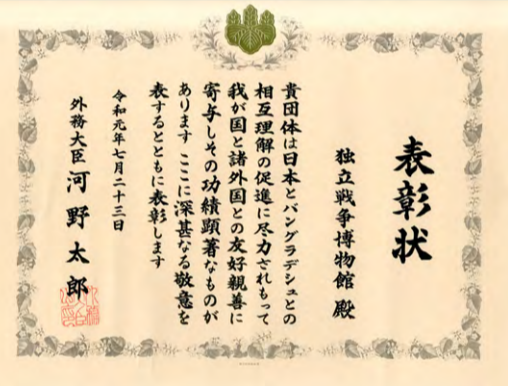 表彰状
独立戦争博物館 殿
貴団体は日本とバングラデシュとの
相互理解の促進に尽力されもって
我が国と諸外国との友好親善に
寄与しその功績顕著なものが
あります ここに深甚なる敬意を
表するとともに表彰します
令和元年七月二十三日
外務大臣 河野太郎